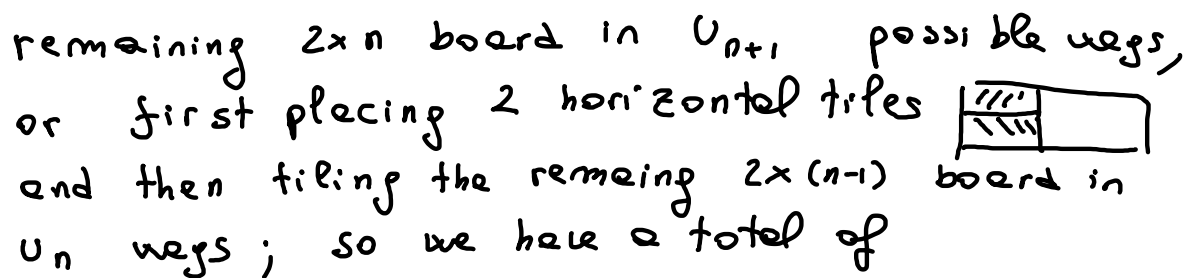 remaining 2×n board in U_{n+1} possible ways,
or first placing 2 horizontal tiles
and then tiling the remaing 2×(n-1) board in
U_n ways; so we have a total of